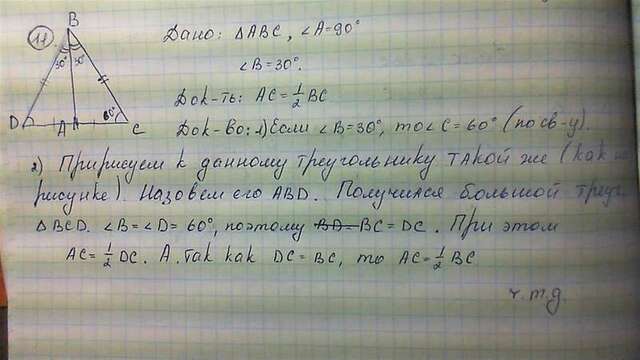 11
B
30° 30°
60°
D A C
Дано: △ABC, ∠A=90°
∠B=30°.
Док-ть: AC=½BC
Док-во: 1) Если ∠B=30°, то ∠C=60° (по св-у).
2) Пририсуем к данному треугольнику такой же (как
рисунке). Назовем его ABD. Получился большой
△BCD. ∠B=∠D=60°, поэтому BC=DC. При этом
AC=½DC. А так как DC=BC, то AC=½BC
ч.т.д.